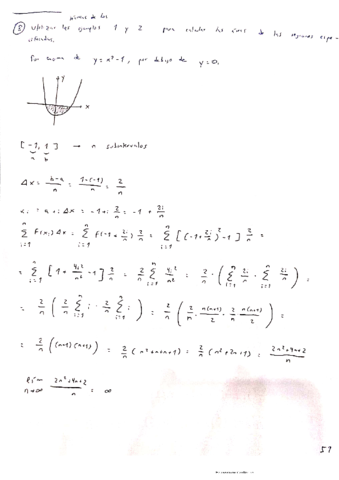 5 utilizar los ejemplos 1 y 2 para calcular las áreas de las regiones espe-
cificadas.
Por encima de y = x² - 1, por debajo de y = 0.
y
x
[-1, 1] → n subintervalos
a b
Δx = b-a/n = 1-(-1)/n = 2/n
xᵢ = a + iΔx = -1 + i 2/n = -1 + 2i/n
n∑i=1 f(xᵢ)Δx = n∑i=1 f(-1 + 2i/n) 2/n = n∑i=1 [(-1 + 2i/n)² - 1] 2/n =
= n∑i=1 [1 + 4i²/n² - 1] 2/n = 2/n n∑i=1 4i²/n² = 2/n · (n∑i=1 2i/n · n∑i=1 2i/n) =
= 2/n (2/n n∑i=1 i · 2/n n∑i=1 i) = 2/n (2/n · n(n+1)/2 · 2/n n(n+1)/2) =
= 2/n ((n+1)(n+1)) = 2/n (n² + n + n + 1) = 2/n (n² + 2n + 1) = 2n² + 4n + 2/n
lím n→∞ 2n² + 4n + 2/n = ∞
51